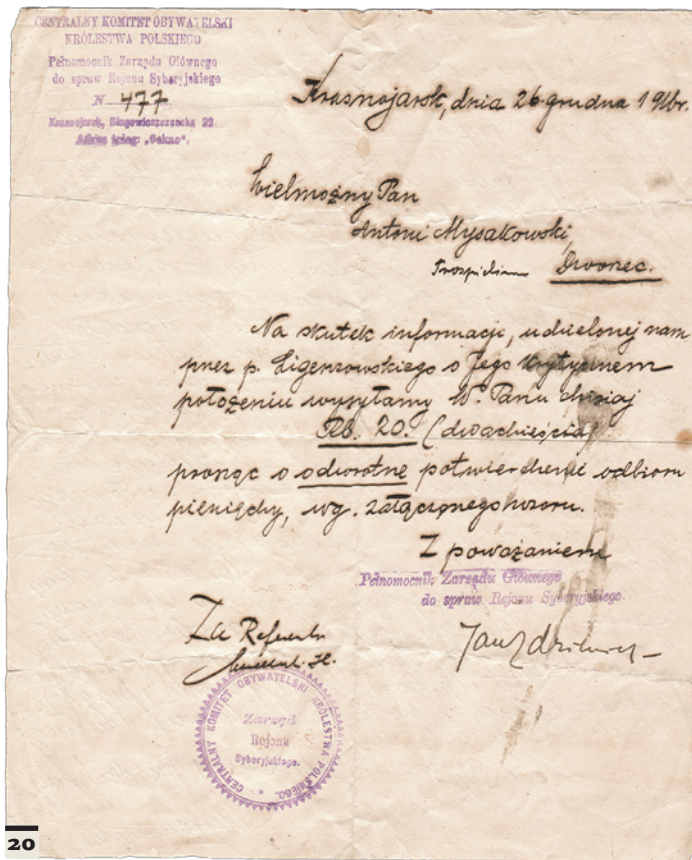 CENTRALNY KOMITET OBYWATELSKI
KRÓLESTWA POLSKIEGO
Pełnomocnik Zarządu Głównego
do spraw Rejonu Syberyjskiego
N 477
Krasnojarsk, Błagowieszczenska 22.
Adres teleg: „Cekno”.
Krasnojarsk, dnia 26 grudna 1916r.
Wielmożny Pan
Antoni Mysakowski,
Dworzec.
Na skutek informacji, udzielonej nam
przez p. Ligenzowskiego o Jego krytycznem
położeniu wysyłamy W. Panu dzisiaj
Rb. 20. (dwadzieścia)
prosząc o odwrotne potwierdzenie odbioru
pieniędzy, wg. załączonego wzoru.
Z poważaniem
Pełnomocnik Zarządu Głównego
do spraw Rejonu Syberyjskiego.
Za Referenta
CENTRALNY KOMITET OBYWATELSKI KRÓLESTWA POLSKIEGO.
Zarząd
Rejonu
Syberyjskiego.
20